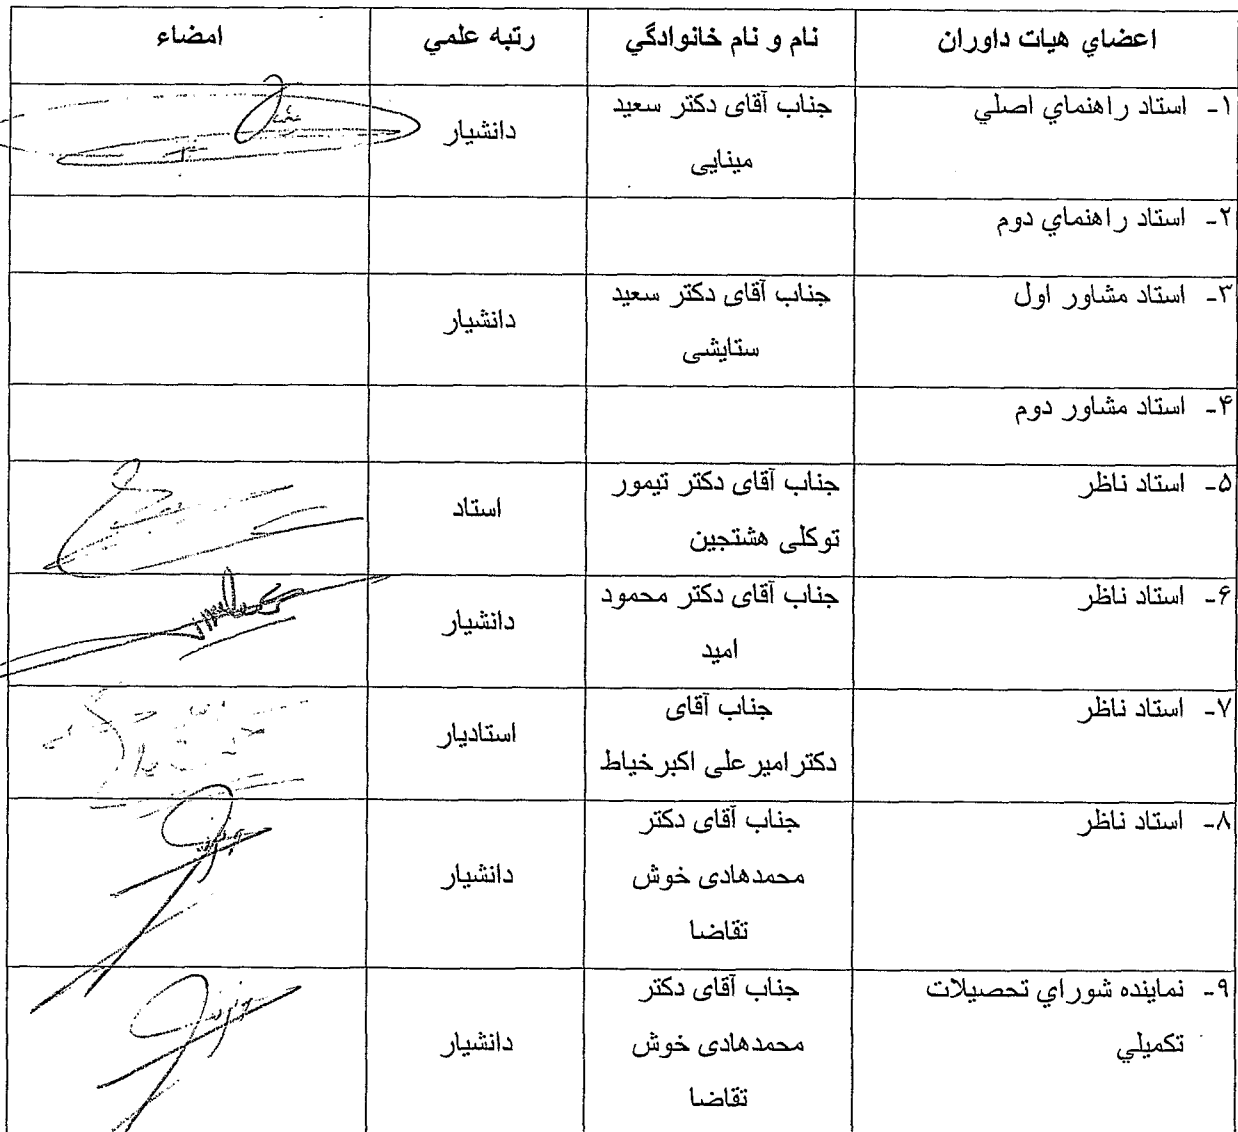 اعضاي هيات داوران نام و نام خانوادگي رتبه علمي امضاء
۱ـ استاد راهنماي اصلي جناب آقای دکتر سعید
مینایی
دانشیار
۲ـ استاد راهنماي دوم
۳ـ استاد مشاور اول جناب آقای دکتر سعید
ستایشی
دانشیار
۴ـ استاد مشاور دوم
۵ـ استاد ناظر جناب آقای دکتر تیمور
توکلی هشتجین
استاد
۶ـ استاد ناظر جناب آقای دکتر محمود
امید
دانشیار
۷ـ استاد ناظر جناب آقای
دکترامیرعلی اکبرخیاط
استادیار
۸ـ استاد ناظر جناب آقای دکتر
محمدهادی خوش
تقاضا
دانشیار
۹ـ نماينده شوراي تحصيلات
تكميلي
جناب آقای دکتر
محمدهادی خوش
تقاضا
دانشیار